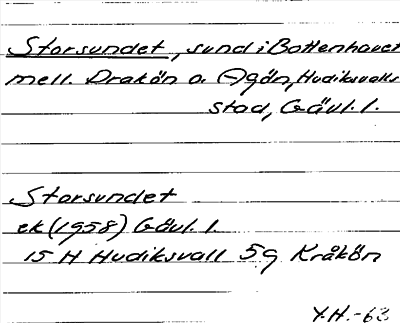 Storsundet, sund i Bottenhavet
mell. Drakön o. Agön, Hudiksvalls
stad, Gävl. l.
Storsundet
ek (1958) Gävl. l.
15 H Hudiksvall 5g Kråkön
Y.H.-63